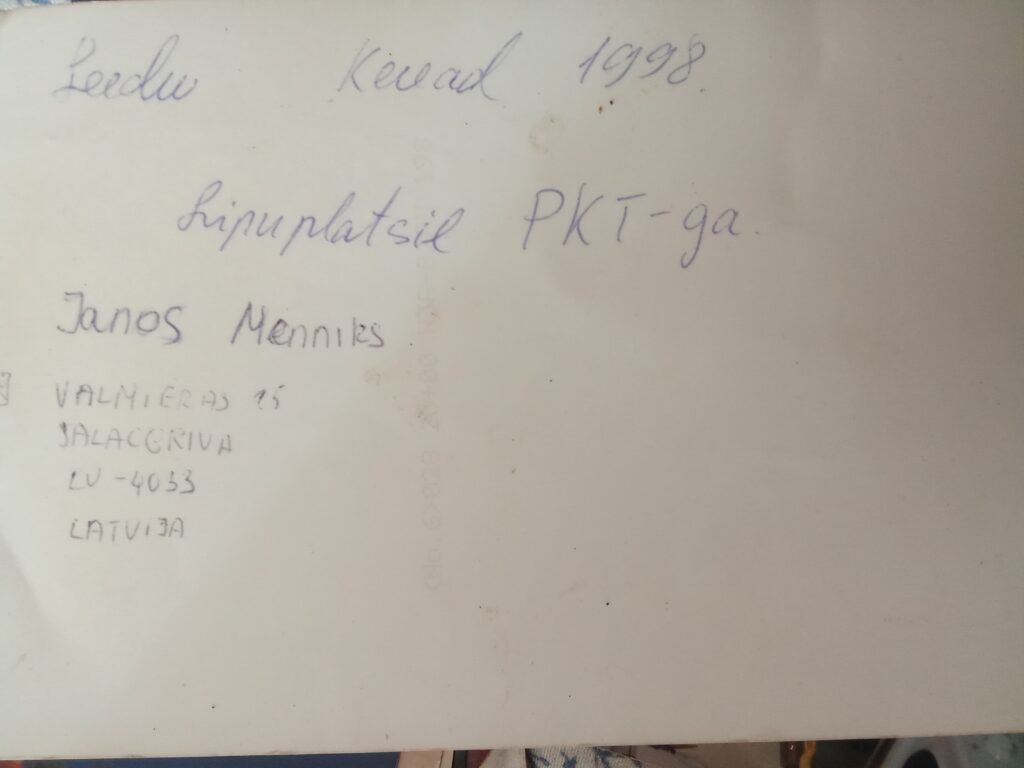 Leedu Kevad 1998.
Lipuplatsil PKT-ga.
Janos Menniks
VALMIERAS 15
SALACGRIVA
LV-4033
LATVIJA